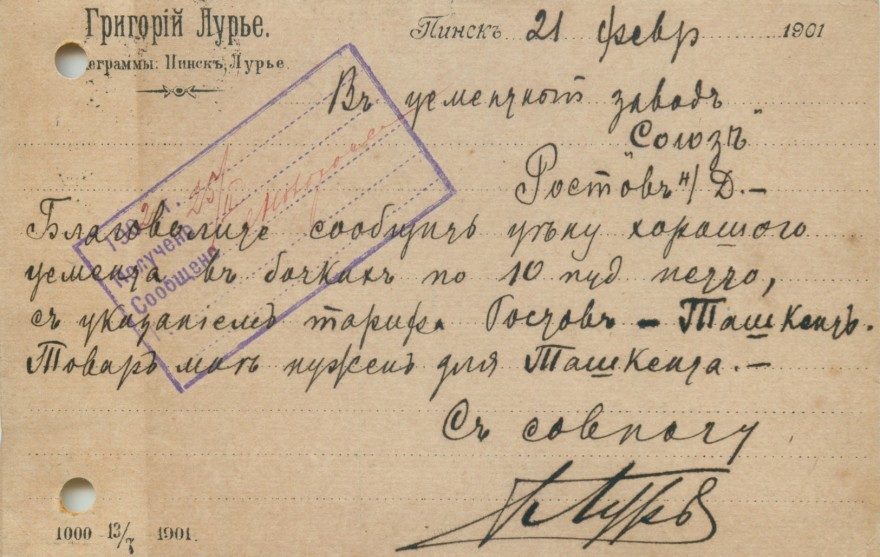 Григорій Лурье.
еграммы: Пинскъ, Лурье
Пинскъ, 21 февр 1901
Въ цементный заводъ
"Союзъ"
Ростовъ н/Д.-
Благоволите сообщить цѣну хорошаго
цемента въ бочкахъ по 10 пуд нетто,
съ указаніемъ тарифа Ростовъ - Ташкентъ.
Товаръ мнѣ нуженъ для Ташкента.-
Съ совпочт
Лурье
Получено
Сообщено
1000 13/I 1901.